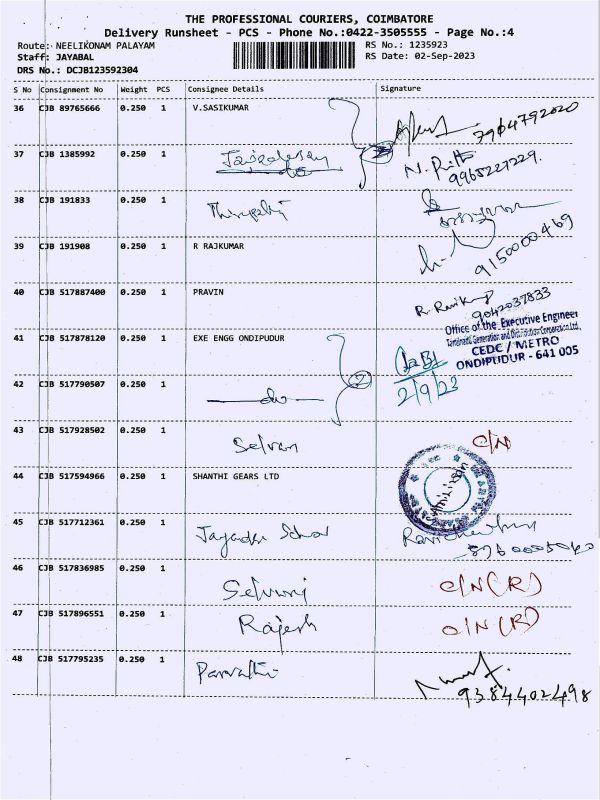 THE PROFESSIONAL COURIERS, COIMBATORE
Delivery Runsheet - PCS - Phone No.:0422-3505555 - Page No.:4
Route: NEELIKONAM PALAYAM RS No.: 1235923
Staff: JAYABAL RS Date: 02-Sep-2023
DRS No.: DCJB123592304
S No Consignment No Weight PCS Consignee Details Signature
36 CJB 89765666 0.250 1 V.SASIKUMAR
37 CJB 1385992 0.250 1
9965227229.
38 CJB 191833 0.250 1
39 CJB 191908 0.250 1 R RAJKUMAR
9150000469
40 CJB 517887400 0.250 1 PRAVIN
9042037833
Office of the Executive Engineer
Tamilnadu Generation and Distribution Corporation Ltd.,
41 CJB 517878120 0.250 1 EXE ENGG ONDIPUDUR
CEDC / METRO
ONDIPUDUR - 641 005
42 CJB 517790507 0.250 1 do 2
2/9/23
43 CJB 517928502 0.250 1 Selvan C/N
44 CJB 517594966 0.250 1 SHANTHI GEARS LTD
45 CJB 517712361 0.250 1
46 CJB 517836985 0.250 1 C/N (R)
47 CJB 517896551 0.250 1 Rajesh C/N (R)
48 CJB 517795235 0.250 1 Parvathi
9384402498